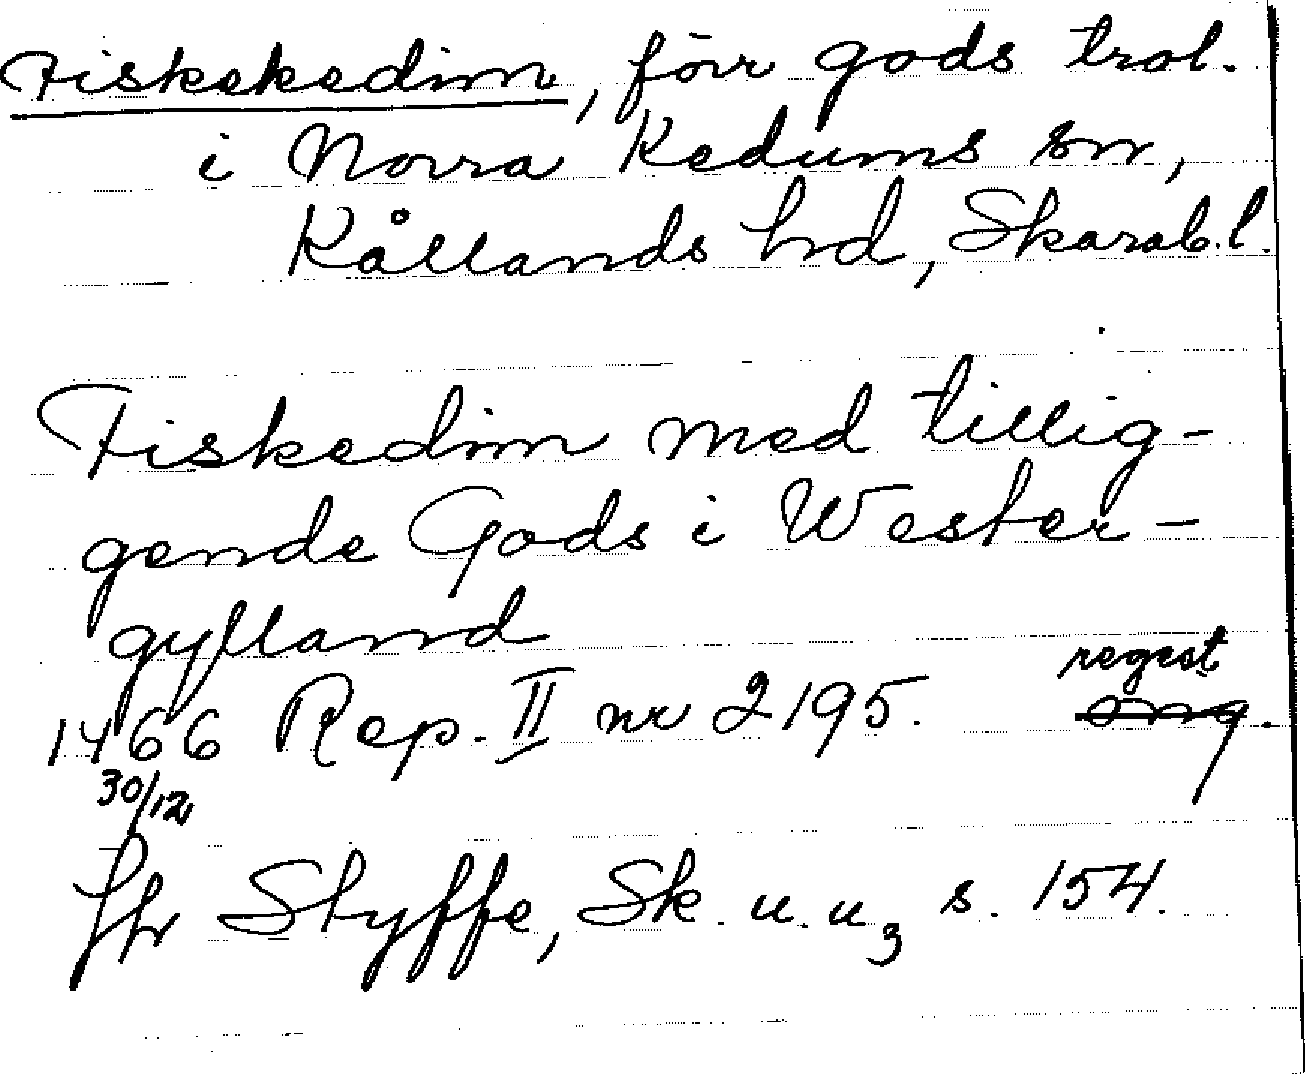 Fiskekedim, förr gods trol.
i Norra Kedums sn,
Kållands hd, Skarab.l.
Fiskedim med tillig-
gende Gods i Wester-
gylland
regest
1466 Rep. II nr 2195.
30/12
Jfr Styffe, Sk. u. u3 s. 154.